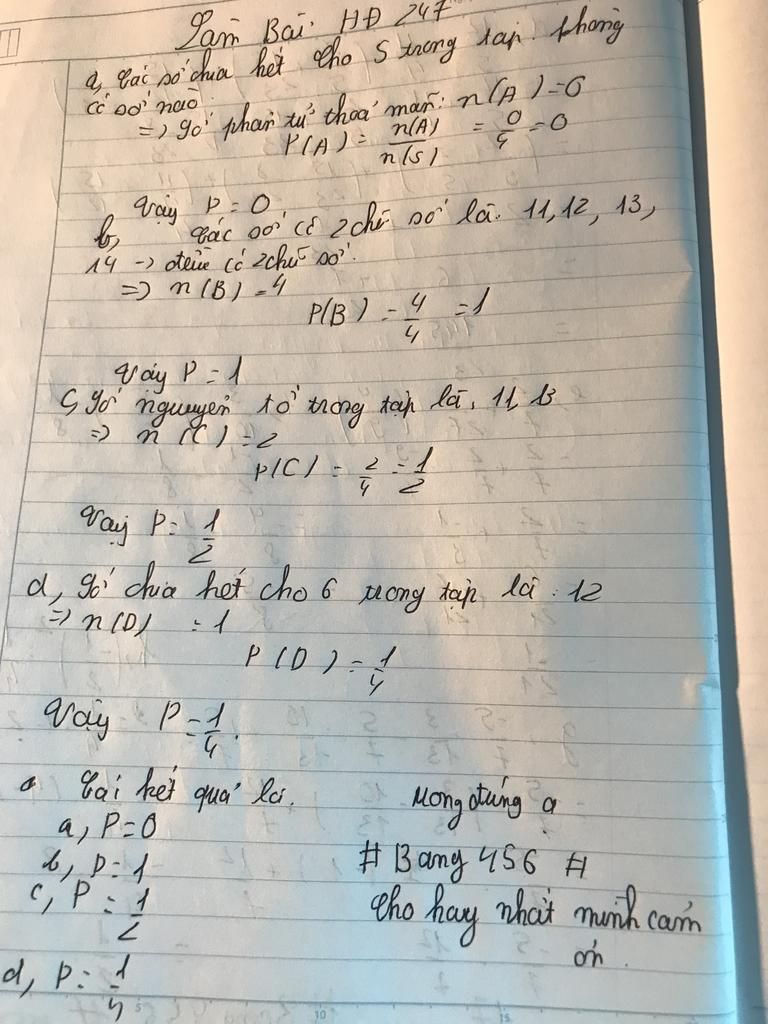 Làm Bài. HĐ 247
a, Các số chia hết cho 5 trong tập. không
có số nào
=> Số phần tử thoả mãn: n(A) = 0
P(A) = n(A)/n(S) = 0/4 = 0
Vậy P = 0
b, Các số có 2 chữ số là. 11, 12, 13,
14 -> đều có 2 chữ số.
=> n(B) = 4
P(B) = 4/4 = 1
Vậy P = 1
c, Số nguyên tố trong tập là, 11, 13
=> n(C) = 2
P(C) = 2/4 = 1/2
Vậy P = 1/2
d, Số chia hết cho 6 trong tập là : 12
=> n(D) = 1
P(D) = 1/4
Vậy P = 1/4.
kết quả là. Mong đúng ạ
a, P = 0
b, P = 1 # Bang 456 #
c, P = 1/2 Cho hay nhất mình cảm
ơn.
d, P = 1/4